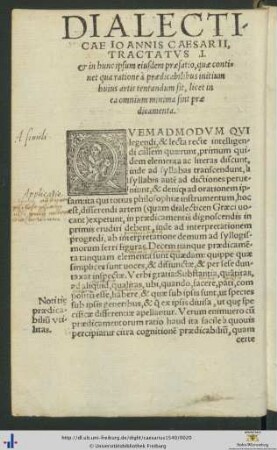 DIALECTI-
CAE IOANNIS CAESARII,
TRACTATVS I.
et in hunc ipsum eiusdem præfatio, quæ conti-
net qua ratione à prædicabilibus initium
huius artis tentandum sit, licet in
ea omnium minima sint præ
dicamenta.
A simili
QVEMADMODVM QVI
legendi, & lecta recte intelligen-
di callem quærunt, primum qui-
dem elementa ac literas discunt,
inde ad syllabas transcendunt, à
syllabis autē ad dictiones perue-
niunt, & deniq; ad orationem ip-
Applicatio
sam: ita qui totius philosophiæ instrumentum, hoc
est, disserendi artem (quam dialecticen Græci uo-
cant) expetunt, in prædicamentis dignoscendis in
primis erudiri debent, inde ad interpretationem
progredi, ab interpretatione demum ad syllogis-
morum ferri figuras. Decem nanque prædicamē-
ta tanquam elementa sunt quædam: quippe quæ
simplices sunt uoces, & disiunctæ, & per sese dun-
taxat inspectæ. Verbi gratia: Substantia, quātitas,
ad aliquid, qualitas, ubi, quando, facere, pati, com
positū esse, habere, & quæ sub ipsis sunt, ut species
sub ipsis generibus, & q̃ ex ipsis diuisa, ut quę spe
cificæ differentiæ apellantur. Verum enimuero cū
Notitię
prædica-
biliū vti-
litas.
prædicamentorum ratio haud ita facile à quouis
percipiatur citra cognitionē prædicabiliū, quam
certe
http://dl.ub.uni-freiburg.de/diglit/caesarius1540/0020
© Universitätsbibliothek Freiburg
Baden-Württemberg